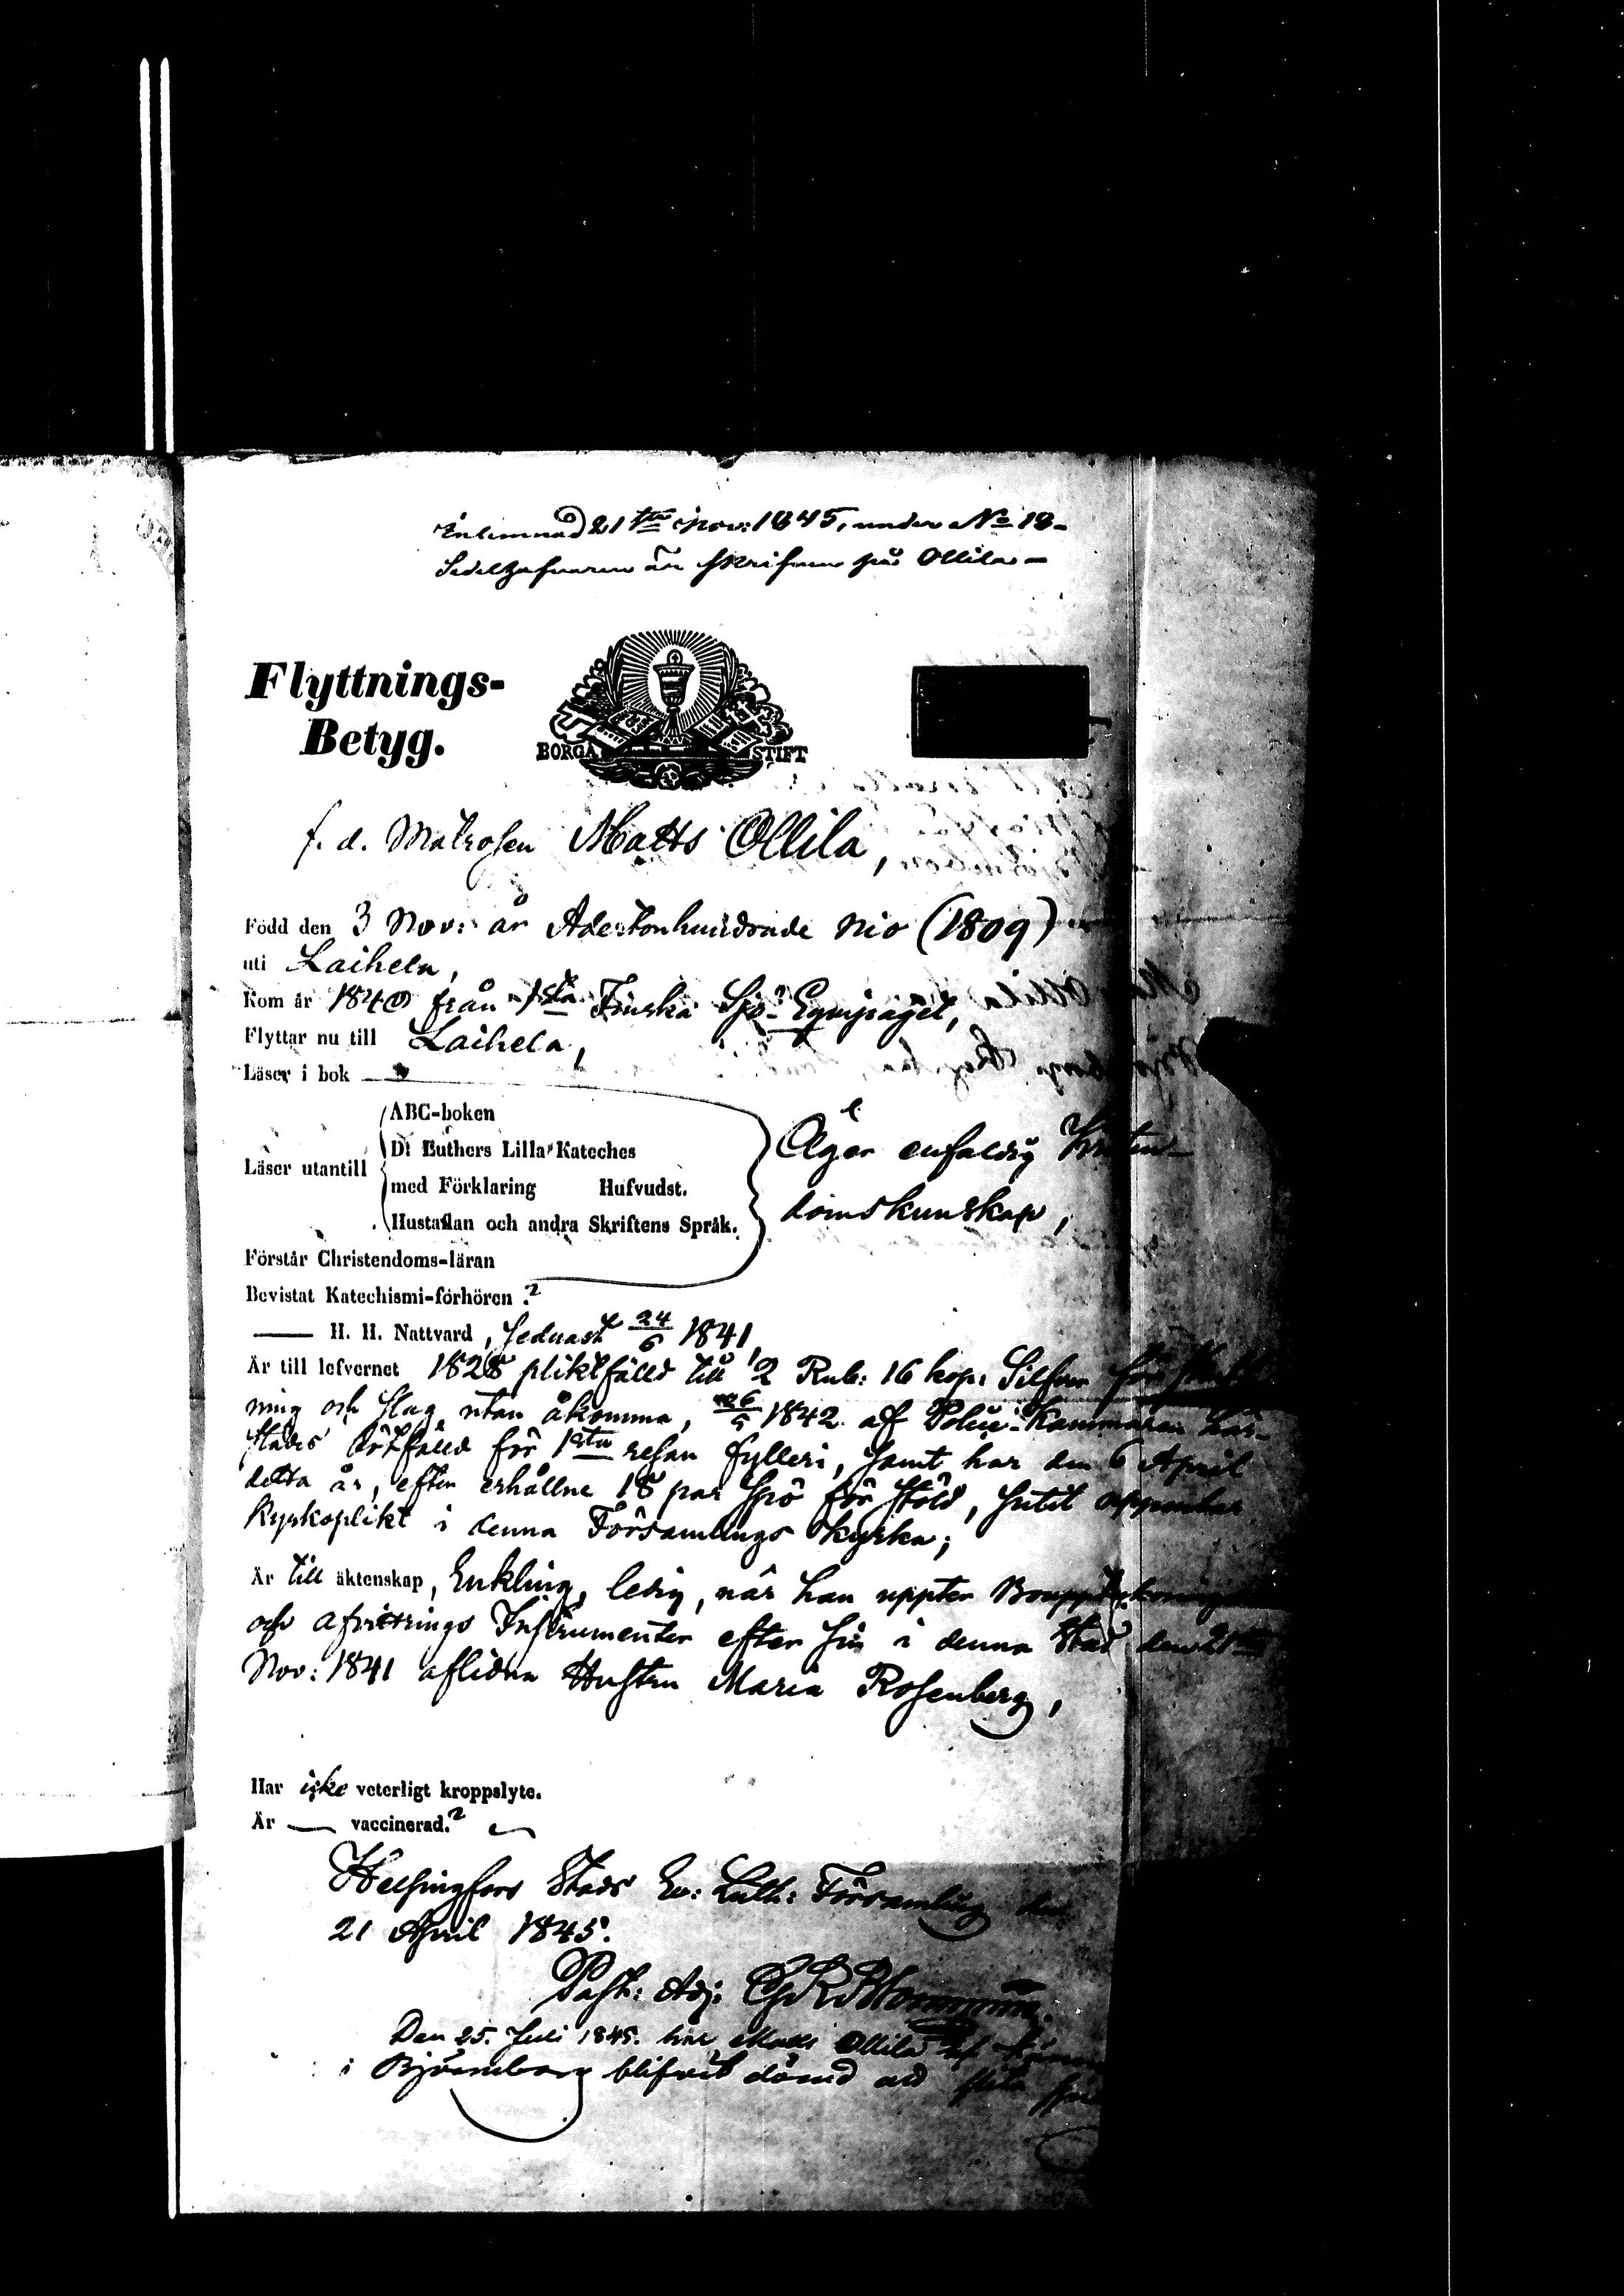 Inlemnad 21sta Nov: 1845, under No 18-
är skrifven på Ollila -
Flyttnings-
Betyg.
BORGÅ STIFT
f. d. Matrosen Matts Ollila,
Född den 3 Nov: år Adertonhundrade nio (1809)
uti Laihela,
Kom år 1840 från 1sta Finska Sjö-Equipaget,
Flyttar nu till Laihela,
Läser i bok
ABC-boken
D! Luthers Lilla Kateches
Läser utantill
med Förklaring Hufvudst.
Hustaflan och andra Skriftens Språk.
Äger enfaldig Kristen-
domskunskap,
Förstår Christendoms-läran
Bevistat Katechismi-förhören ?
— H. H. Nattvard, sednast 24/6 1841,
Är till lefvernet 1828 pliktfälld till 2 Rub: 16 kop: Silfver för
ning och slag utan åkomma, 1842 af Police-Kammaren här-
städes bötfälld för 1sta resan fylleri, samt har den 6 April
detta år, efter erhållne 18 par spö för stöld, uppenbar
Kyrkoplikt i denna Församlings kyrka;
Är till äktenskap, Enkling, ledig, när han uppter
och afvittrings Instrumenter efter sin i denna Stad den 21
Nov: 1841 aflidna Hustru Maria Rosenberg,
Har icke veterligt kroppslyte.
Är — vaccinerad.?
Helsingfors Stads Ev: Luth: Församling den
21 April 1845.
Past: Adj:
Den 25. Juli 1845. har Matts Ollila af
i Björneborg blifvit dömd att slita